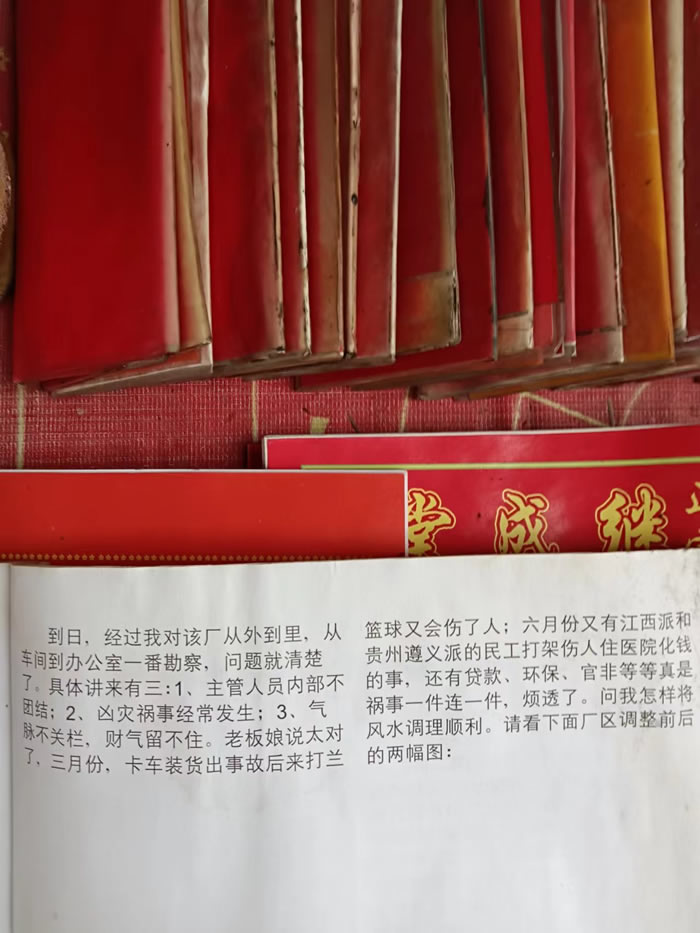 堂 成 继
到日，经过我对该厂从外到里，从
车间到办公室一番勘察，问题就清楚
了。具体讲来有三:1、主管人员内部不
团结；2、凶灾祸事经常发生；3、气
脉不关栏，财气留不住。老板娘说太对
了，三月份，卡车装货出事故后来打兰
篮球又会伤了人；六月份又有江西派和
贵州遵义派的民工打架伤人住医院化钱
的事，还有贷款、环保、官非等等真是
祸事一件连一件，烦透了。问我怎样将
风水调理顺利。请看下面厂区调整前后
的两幅图：